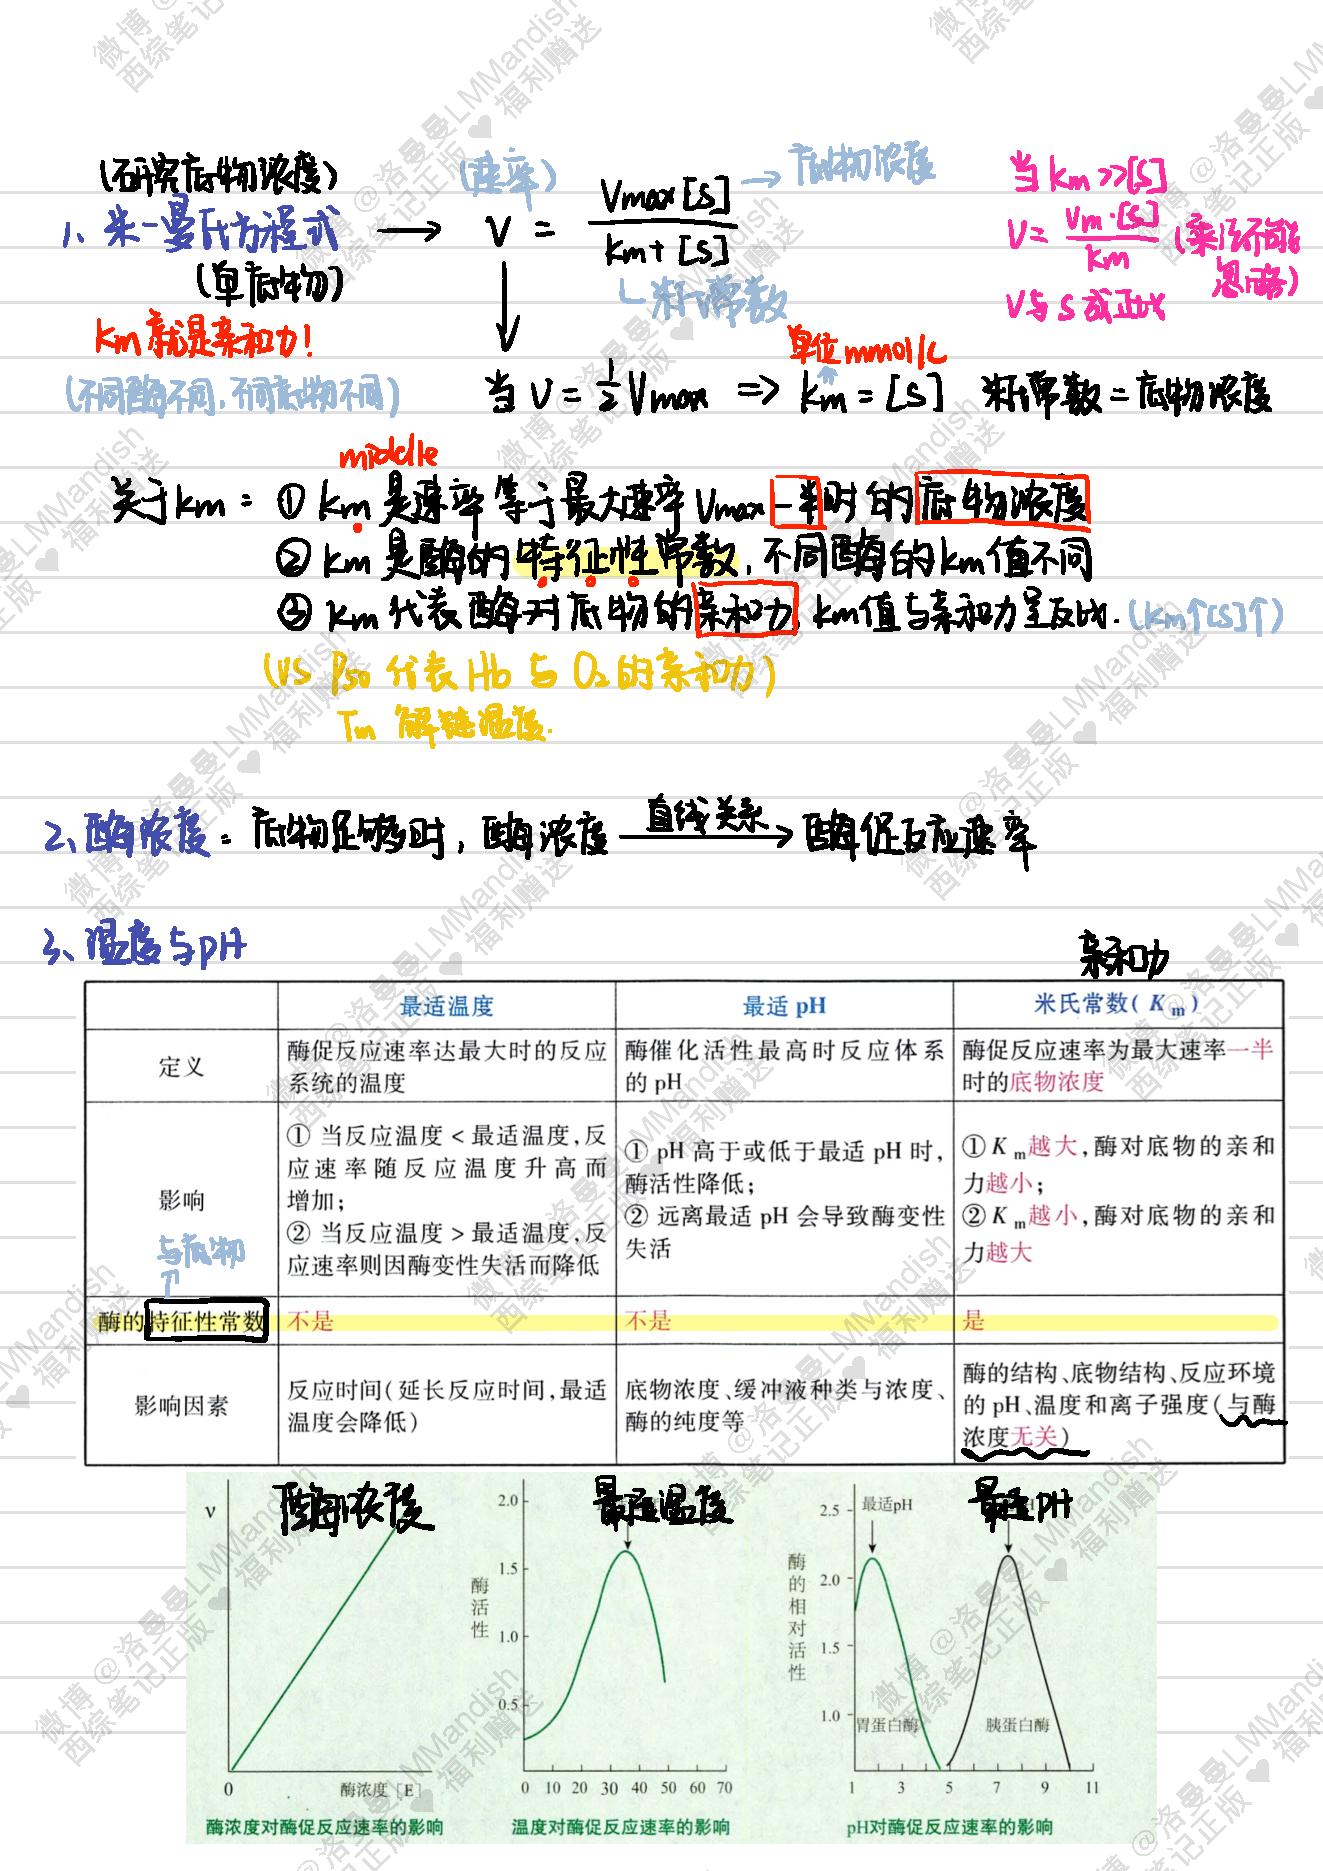 (研究底物浓度)
1、米-曼氏方程式
(单底物)
(速率)
V = Vmax[S] / Km+[S]
→ 底物浓度
米氏常数
当 Km>>[S]
V = Vm·[S] / Km (乘法不可能忽略)
V与S成正比
Km就是亲和力!
(不同酶不同,不同底物不同)
单位 mmol/L
当 V = 1/2 Vmax => Km = [S] 米氏常数=底物浓度
middle
关于Km: ① Km是速率等于最大速率Vmax一半时的底物浓度
② Km是酶的特征性常数,不同酶的Km值不同
③ Km代表酶对底物的亲和力,Km值与亲和力呈反比.(Km↑[S]↑)
(VS P50 代表 Hb 与 O2的亲和力)
Tm 解链温度.
2、酶浓度:底物足够时,酶浓度 直线关系→ 酶促反应速率
3、温度与pH
亲和力
最适温度 最适 pH 米氏常数(Km)
定义
酶促反应速率达最大时的反应
系统的温度
酶催化活性最高时反应体系
的 pH
酶促反应速率为最大速率一半
时的底物浓度
影响
与底物
① 当反应温度 < 最适温度,反
应速率随反应温度升高而
增加;
② 当反应温度 > 最适温度,反
应速率则因酶变性失活而降低
① pH 高于或低于最适 pH 时,
酶活性降低;
② 远离最适 pH 会导致酶变性
失活
① Km越大,酶对底物的亲和
力越小;
② Km越小,酶对底物的亲和
力越大
酶的特征性常数 不是 不是 是
影响因素
反应时间(延长反应时间,最适
温度会降低)
底物浓度、缓冲液种类与浓度、
酶的纯度等
酶的结构、底物结构、反应环境
的 pH、温度和离子强度(与酶
浓度无关)
酶浓度
v
0
酶浓度 [E]
酶浓度对酶促反应速率的影响
最适温度
酶活性
2.0
1.5
1.0
0.5
0 10 20 30 40 50 60 70
温度对酶促反应速率的影响
最适pH
最适pH
酶的相对活性
2.5
2.0
1.5
1.0
胃蛋白酶
胰蛋白酶
1 3 5 7 9 11
pH对酶促反应速率的影响
微博 @洛曼曼LMMandish
西综笔记正版 ♥ 福利赠送